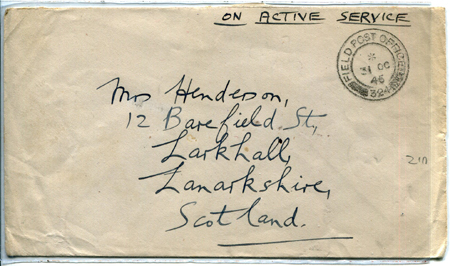 ON ACTIVE SERVICE
FIELD POST OFFICE
*
31 OC
46
324
Mrs Henderson,
12 Barefield St,
Larkhall,
Lanarkshire,
Scotland.